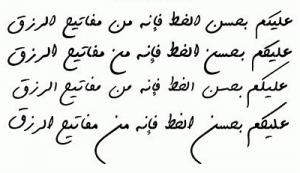 عليكم بحسن الخط فإنه من مفاتيح الرزق
عليكم بحسن الخط فإنه من مفاتيح الرزق
عليكم بحسن الخط فإنه من مفاتيح الرزق
عليكم بحسن الخط فإنه من مفاتيح الرزق